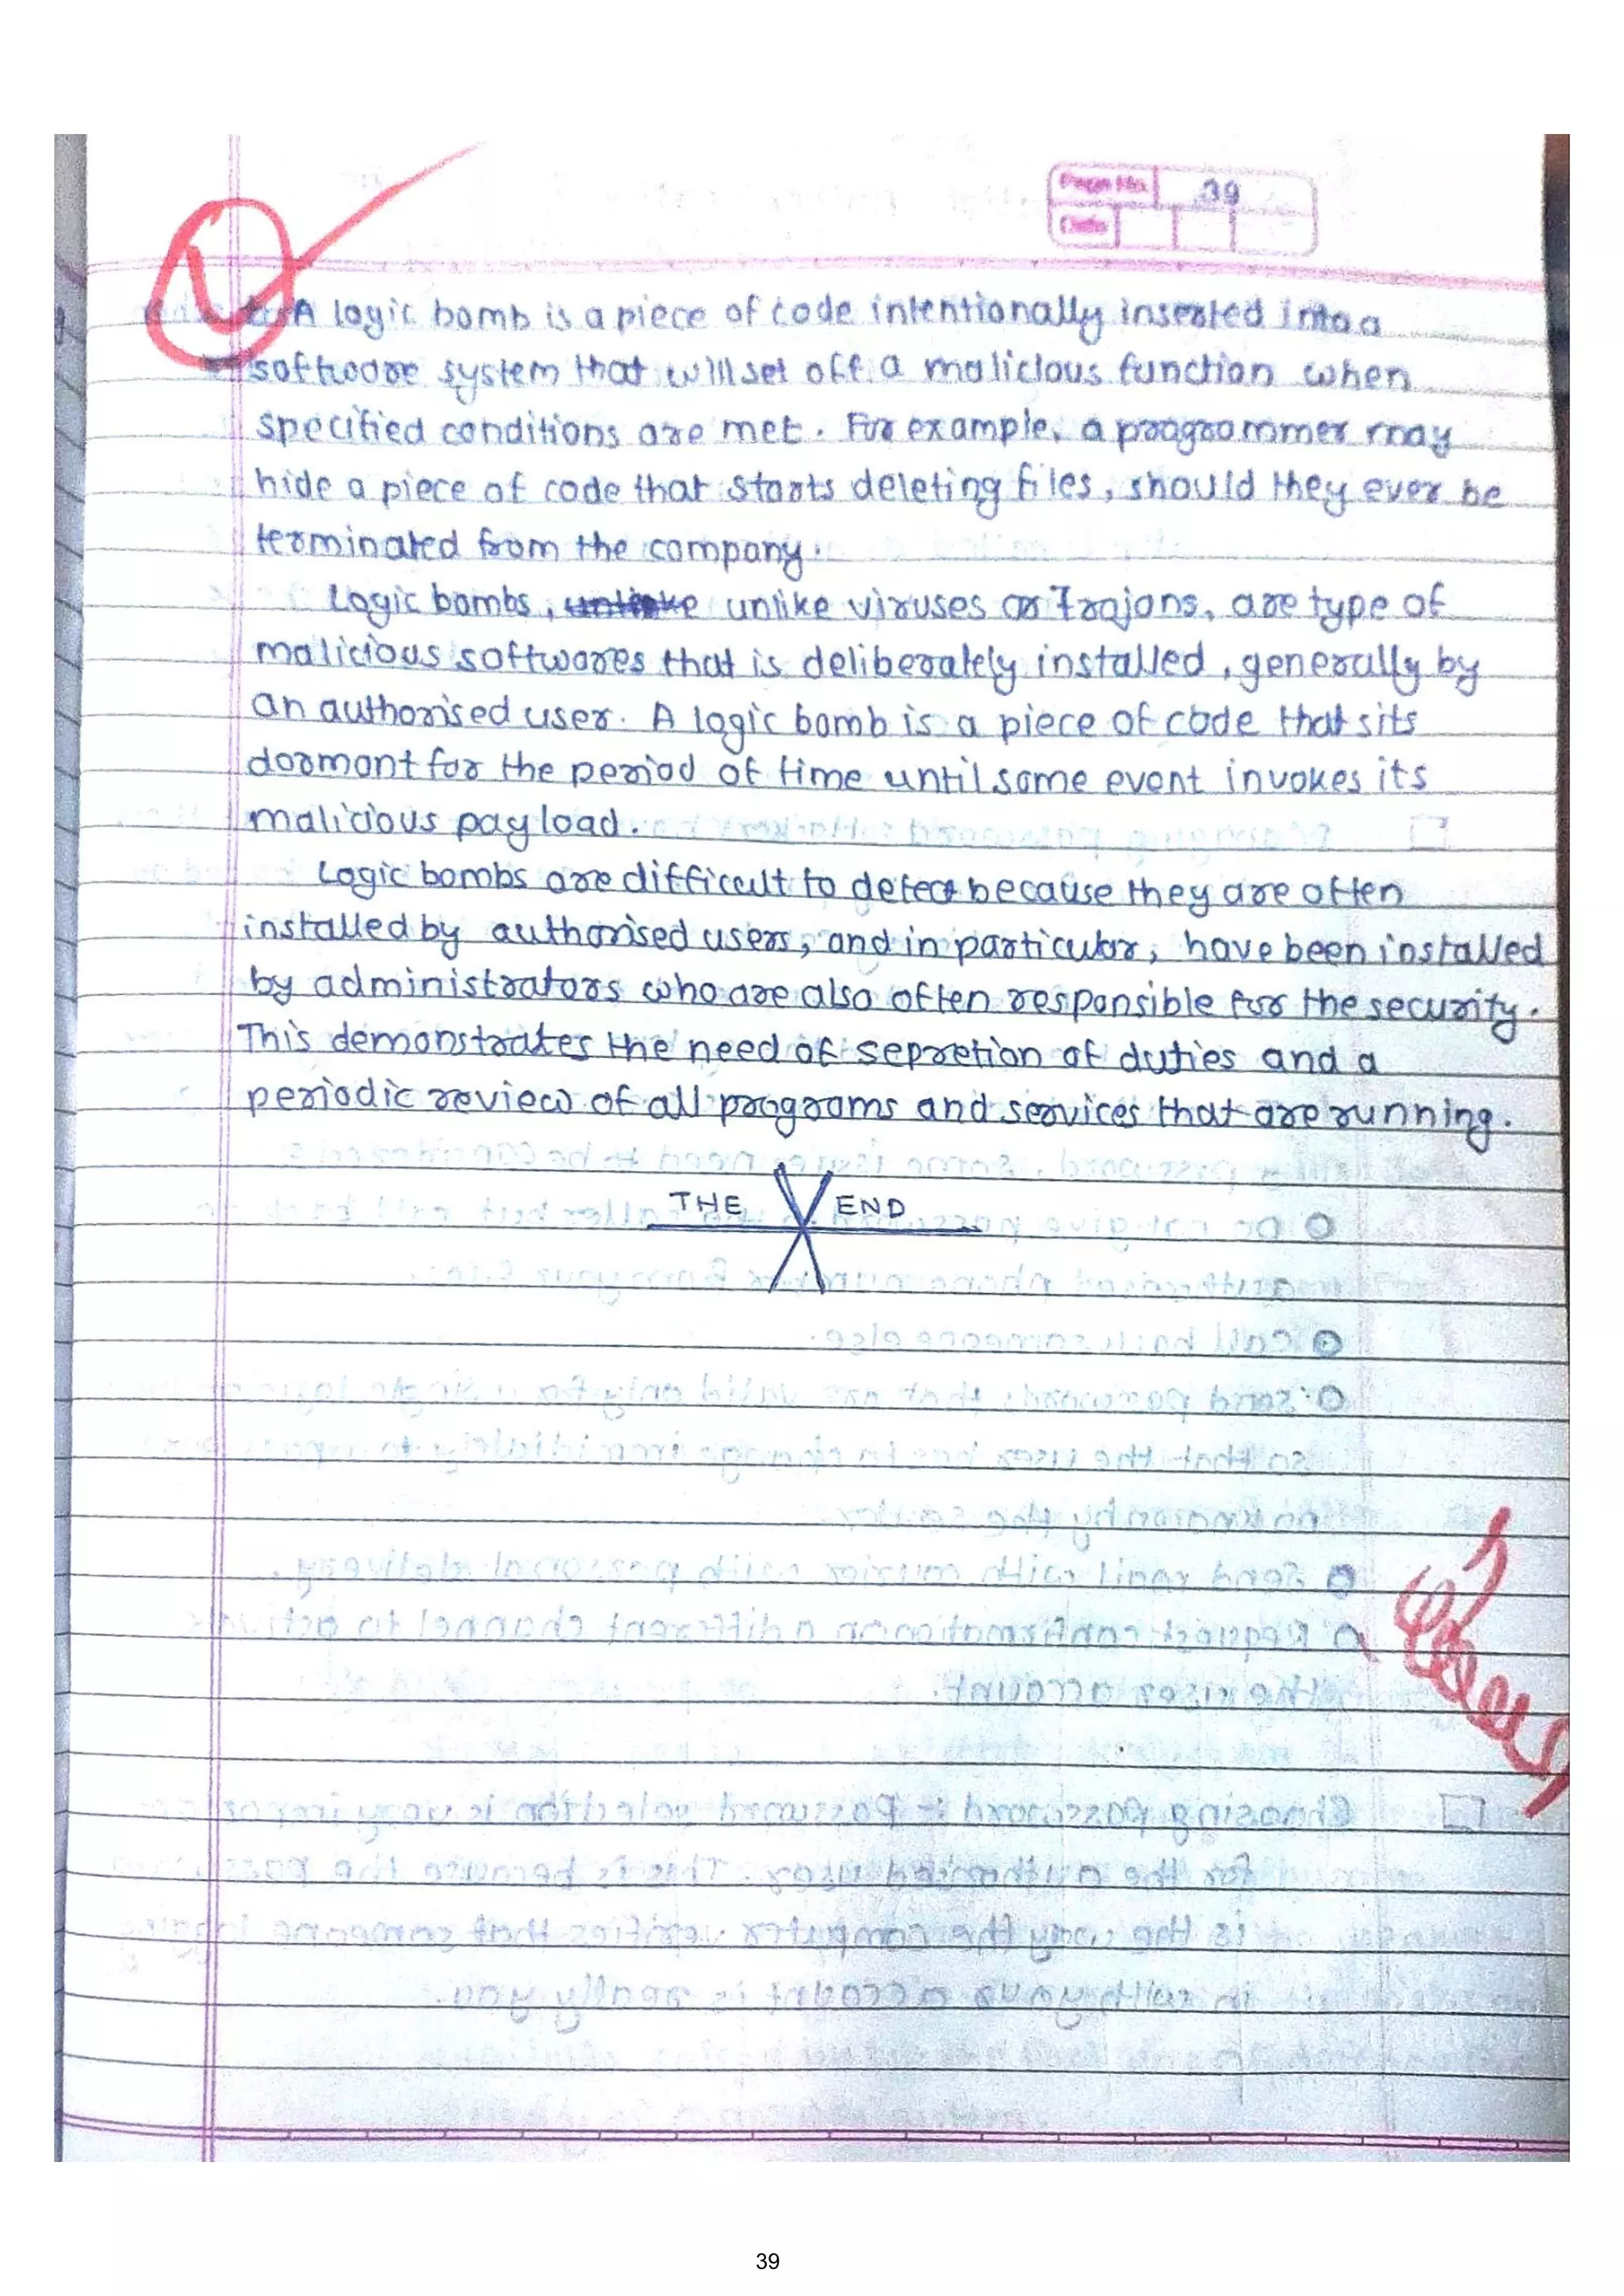 Page No. 39
Date
A logic bomb is a piece of code intentionally inserted into a
software system that will set off a malicious function when
specified conditions are met. For example, a programmer may
hide a piece of code that starts deleting files, should they ever be
terminated from the company.
Logic bombs, unlike viruses or Trojans, are type of
malicious softwares that is deliberately installed, generally by
an authorised user. A logic bomb is a piece of code that sits
dormant for the period of time until some event invokes its
malicious payload.
Logic bombs are difficult to detect because they are often
installed by authorised users, and in particular, have been installed
by administrators who are also often responsible for the security.
This demonstrates the need of sepretion of duties and a
periodic review of all programs and services that are running.
THE END
39